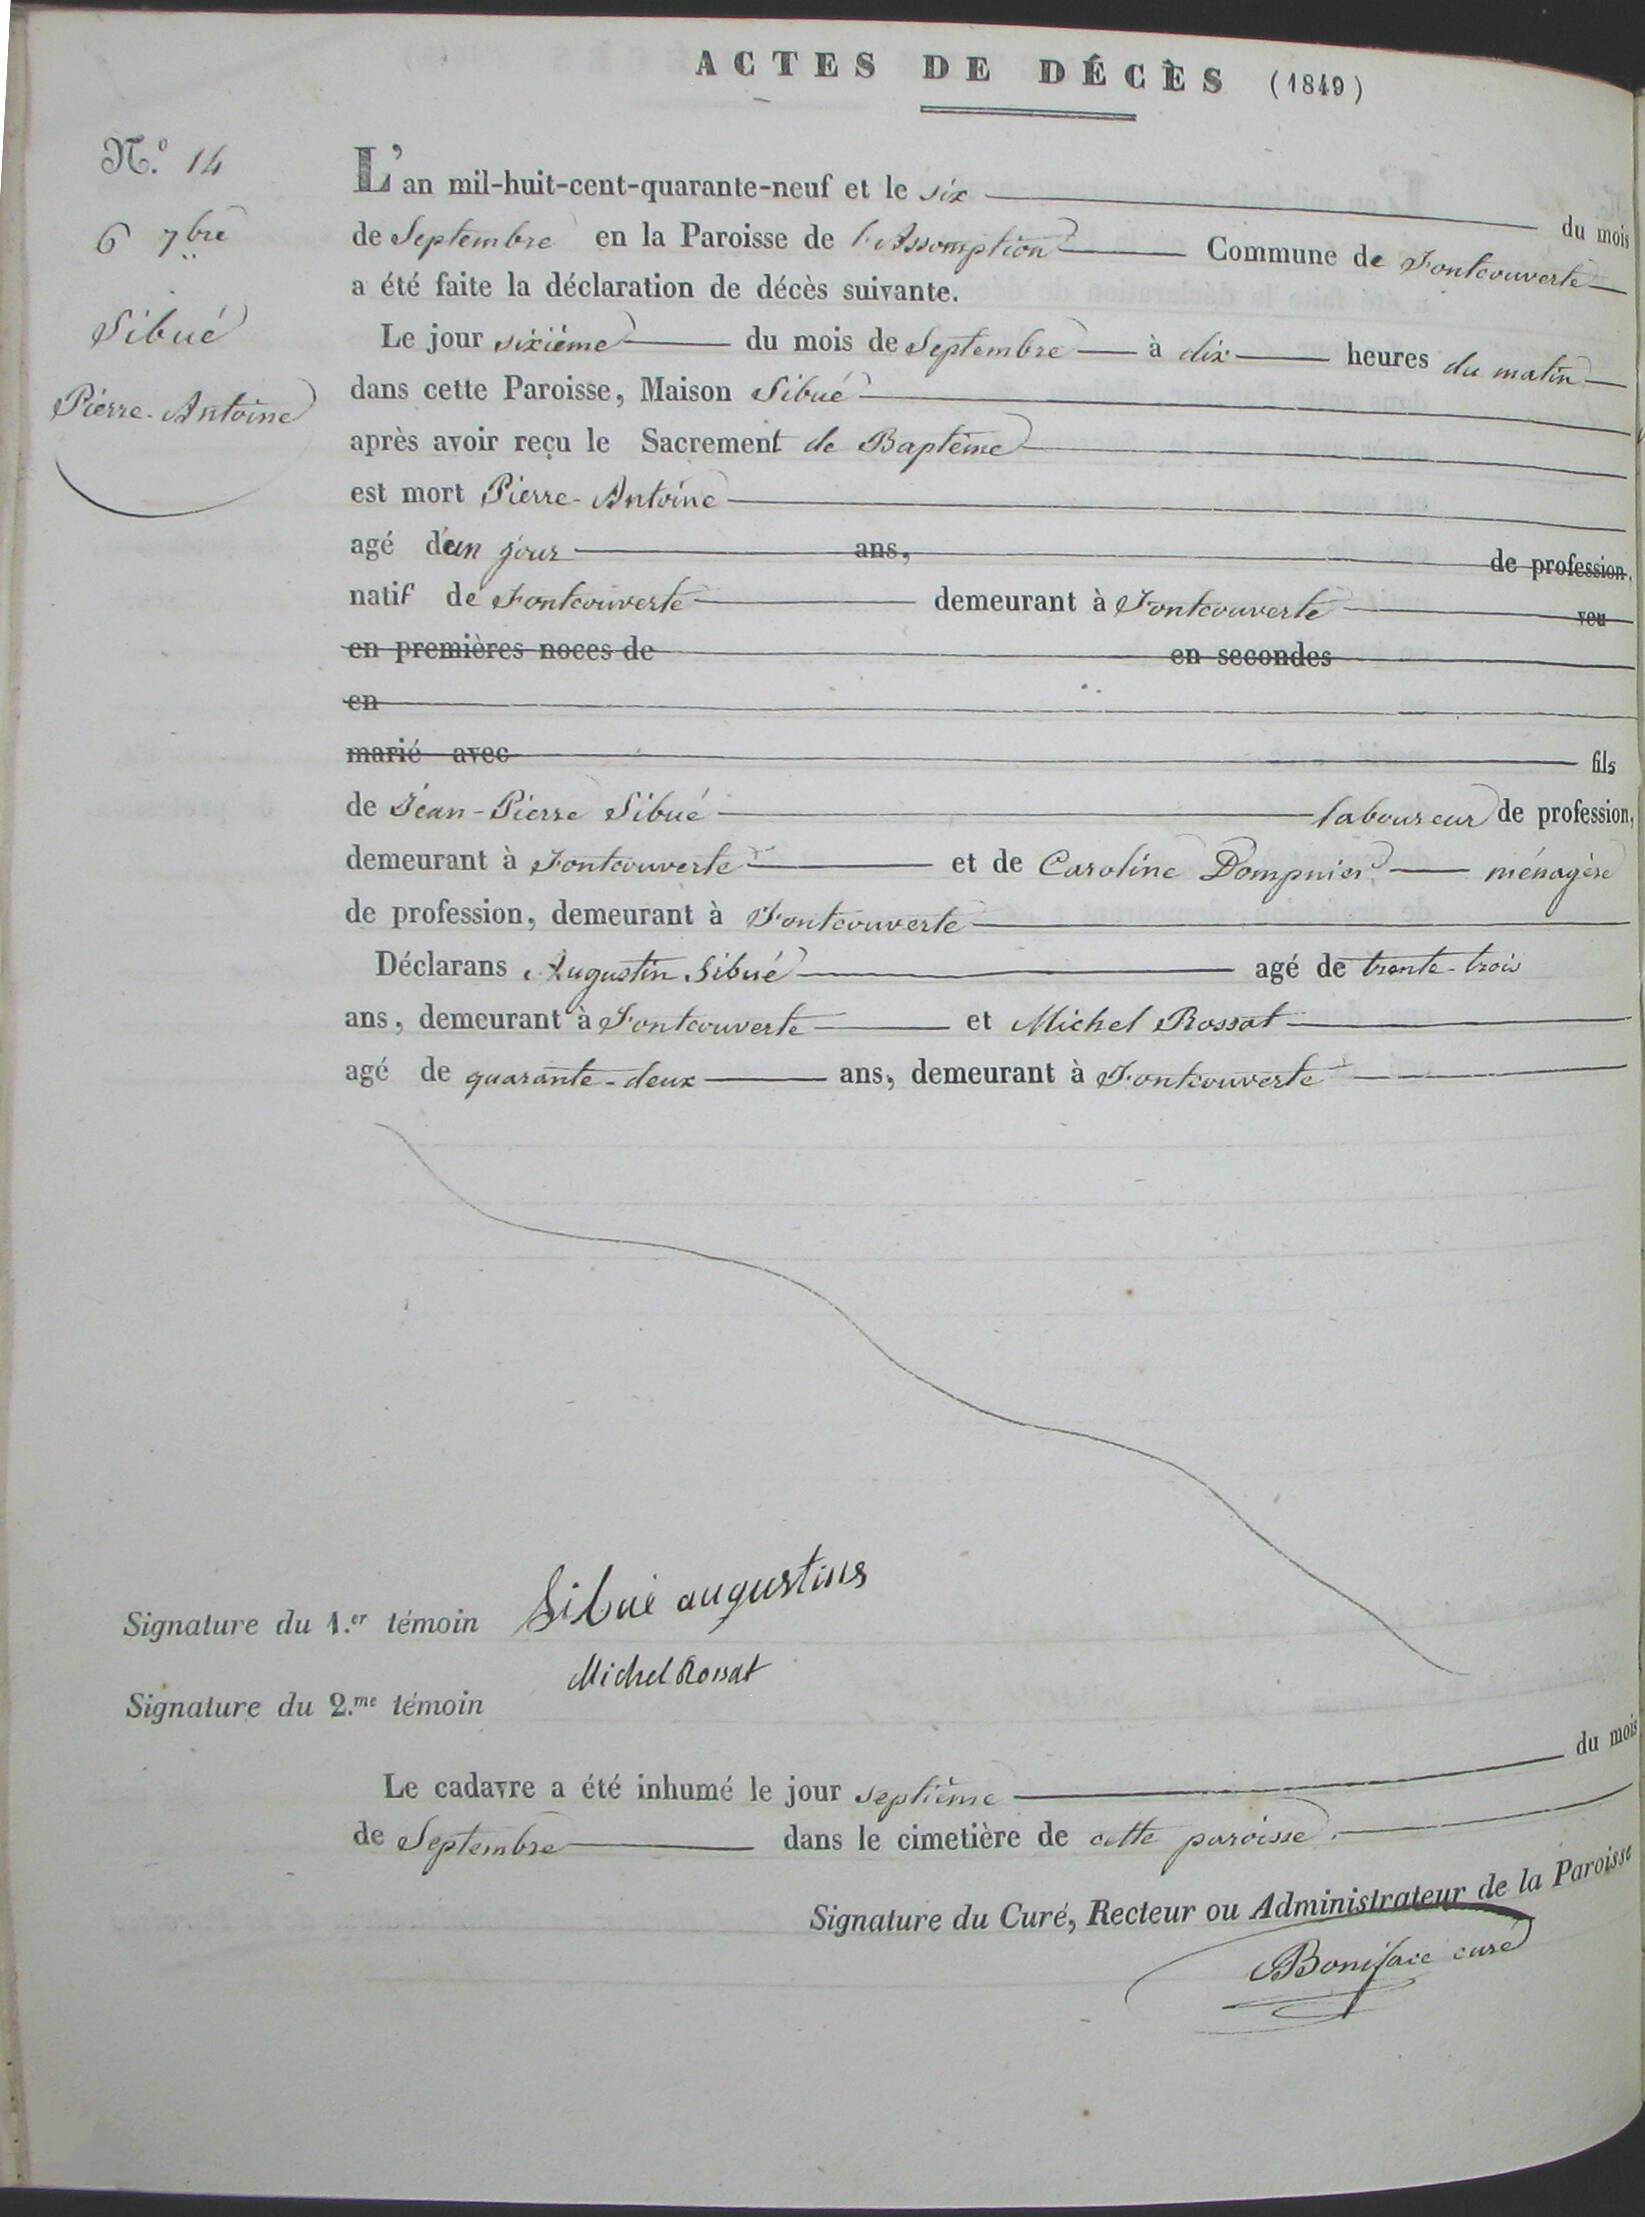 ACTES DE DÉCÈS (1849)
N.o 14
6 7bre
Sibué
Pierre-Antoine
L'an mil-huit-cent-quarante-neuf et le six du mois
de Septembre en la Paroisse de l'Assomption Commune de Fontcouverte
a été faite la déclaration de décès suivante.
Le jour sixième du mois de Septembre à dix heures du matin
dans cette Paroisse, Maison Sibué
après avoir reçu le Sacrement de Baptême
est mort Pierre-Antoine
agé d'un jour ans, de profession.
natif de Fontcouverte demeurant à Fontcouverte veu
en premières noces de en secondes
en
marié avec fils
de Jean-Pierre Sibué laboureur de profession,
demeurant à Fontcouverte et de Caroline Dompnier ménagère
de profession, demeurant à Fontcouverte
Déclarans Augustin Sibué agé de trente-trois
ans, demeurant à Fontcouverte et Michel Rossat
agé de quarante-deux ans, demeurant à Fontcouverte
Signature du 1.er témoin Sibué augustins
Signature du 2.me témoin Michel Rossat
Le cadavre a été inhumé le jour septième du mois
de Septembre dans le cimetière de cette paroisse.
Signature du Curé, Recteur ou Administrateur de la Paroisse
Boniface curé